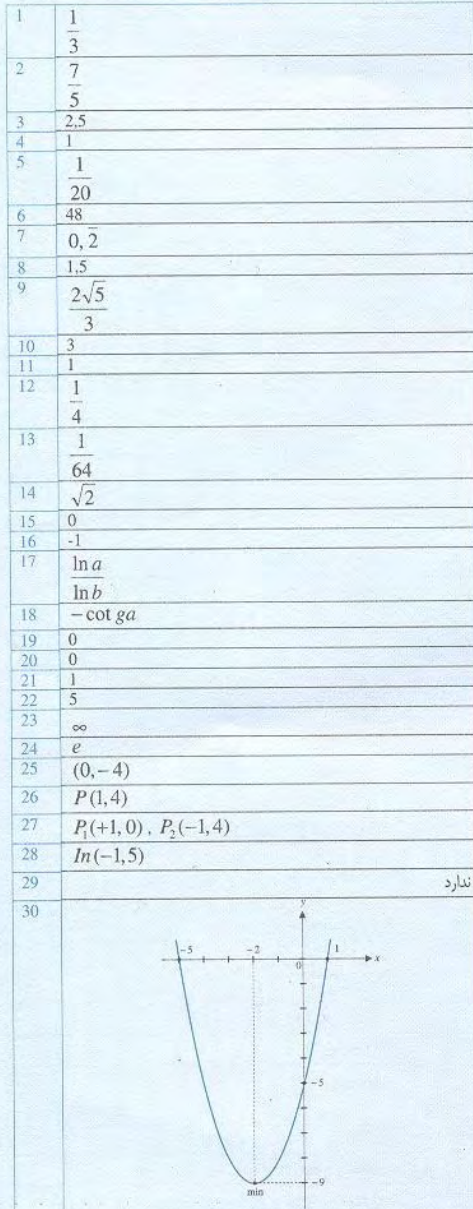 1 1/3
2 7/5
3 2,5
4 1
5 1/20
6 48
7 0,2̅
8 1,5
9 2√5/3
10 3
11 1
12 1/4
13 1/64
14 √2
15 0
16 -1
17 ln a/ln b
18 -cot ga
19 0
20 0
21 1
22 5
23 ∞
24 e
25 (0,-4)
26 P(1,4)
27 P₁(+1,0) , P₂(-1,4)
28 In(-1,5)
29 ندارد
30
y
-5 -2 0 1 x
-5
-9
min